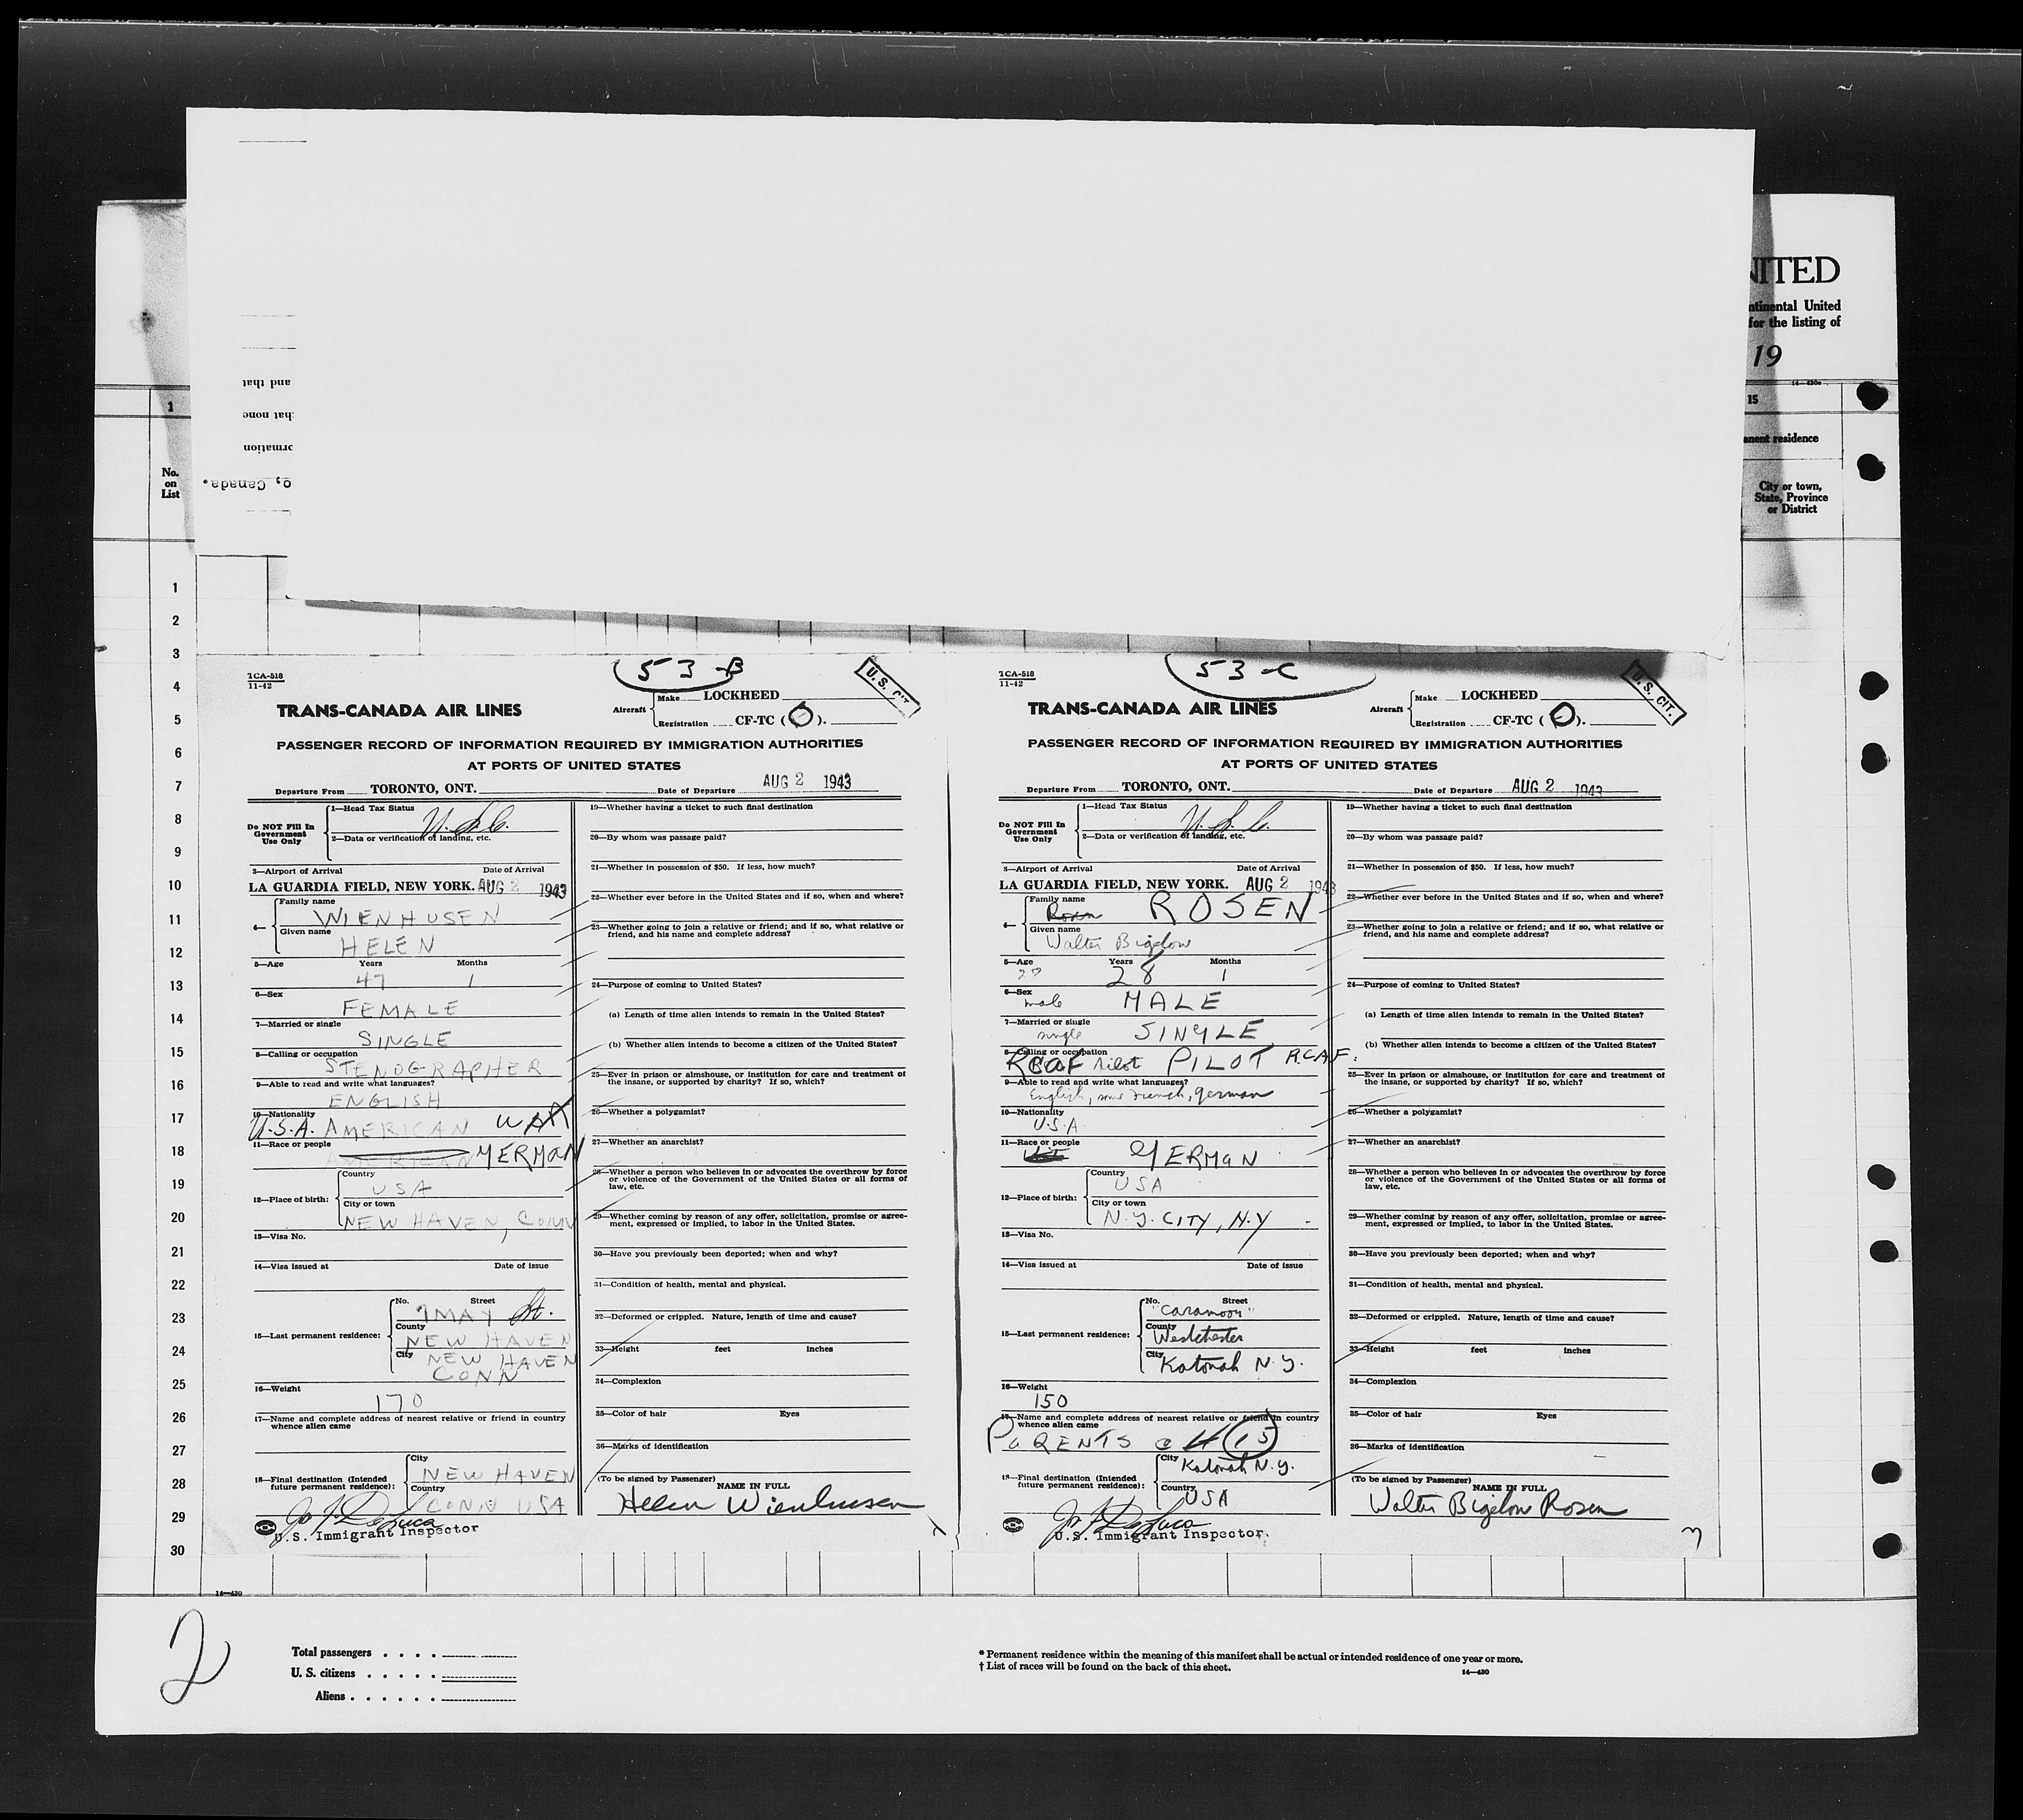 NITED
ntinental United
for the listing of
19
14—430a
and that
that none
ormation
o, Canada.
1
15
anent residence
No.
on
List
City or town,
State, Province
or District
1
2
3
4
5
6
7
8
9
10
11
12
13
14
15
16
17
18
19
20
21
22
23
24
25
26
27
28
29
30
53-B
TCA-518
11-42
U.S. CIT.
TRANS-CANADA AIR LINES
Aircraft
Make LOCKHEED
Registration CF-TC (O).
PASSENGER RECORD OF INFORMATION REQUIRED BY IMMIGRATION AUTHORITIES
AT PORTS OF UNITED STATES
Departure From TORONTO, ONT. Date of Departure AUG 2 1943
Do NOT Fill In
Government
Use Only
1—Head Tax Status
U.S.C.
2—Data or verification of landing, etc.
3—Airport of Arrival Date of Arrival
LA GUARDIA FIELD, NEW YORK. AUG 2 1943
4—
Family name
WIENHUSEN
Given name
HELEN
5—Age Years Months
47 1
6—Sex
FEMALE
7—Married or single
SINGLE
8—Calling or occupation
STENOGRAPHER
9—Able to read and write what languages?
ENGLISH
10—Nationality
U.S.A. AMERICAN
11—Race or people
AMERICAN GERMAN
12—Place of birth:
Country
USA
City or town
NEW HAVEN, CONN
13—Visa No.
14—Visa issued at Date of issue
15—Last permanent residence:
No. Street
7 MAY St.
County
NEW HAVEN
City
NEW HAVEN
CONN
16—Weight
170
17—Name and complete address of nearest relative or friend in country
whence alien came
18—Final destination (Intended
future permanent residence):
City
NEW HAVEN
Country
CONN USA
U.S. Immigrant Inspector
19—Whether having a ticket to such final destination
20—By whom was passage paid?
21—Whether in possession of $50. If less, how much?
22—Whether ever before in the United States and if so, when and where?
23—Whether going to join a relative or friend; and if so, what relative or
friend, and his name and complete address?
24—Purpose of coming to United States?
(a) Length of time alien intends to remain in the United States?
(b) Whether alien intends to become a citizen of the United States?
25—Ever in prison or almshouse, or institution for care and treatment of
the insane, or supported by charity? If so, which?
26—Whether a polygamist?
27—Whether an anarchist?
28—Whether a person who believes in or advocates the overthrow by force
or violence of the Government of the United States or all forms of
law, etc.
29—Whether coming by reason of any offer, solicitation, promise or agree-
ment, expressed or implied, to labor in the United States.
30—Have you previously been deported; when and why?
31—Condition of health, mental and physical.
32—Deformed or crippled. Nature, length of time and cause?
33—Height feet inches
34—Complexion
35—Color of hair Eyes
36—Marks of identification
(To be signed by Passenger)
NAME IN FULL
Helen Wienhusen
53-C
TCA-518
11-42
U.S. CIT.
TRANS-CANADA AIR LINES
Aircraft
Make LOCKHEED
Registration CF-TC (O).
PASSENGER RECORD OF INFORMATION REQUIRED BY IMMIGRATION AUTHORITIES
AT PORTS OF UNITED STATES
Departure From TORONTO, ONT. Date of Departure AUG 2 1943
Do NOT Fill In
Government
Use Only
1—Head Tax Status
U.S.C.
2—Data or verification of landing, etc.
3—Airport of Arrival Date of Arrival
LA GUARDIA FIELD, NEW YORK. AUG 2 1943
4—
Family name
Rosen ROSEN
Given name
Walter Bigelow
5—Age Years Months
28 1
6—Sex
male MALE
7—Married or single
single SINGLE
8—Calling or occupation
RCAF Pilot PILOT R.C.A.F.
9—Able to read and write what languages?
English, some French, German
10—Nationality
U.S.A.
11—Race or people
GERMAN
12—Place of birth:
Country
USA
City or town
N.Y. CITY, N.Y
13—Visa No.
14—Visa issued at Date of issue
15—Last permanent residence:
No. Street
"Caramoor"
County
Westchester
City
Katonah N.Y.
16—Weight
150
17—Name and complete address of nearest relative or friend in country
whence alien came
PARENTS @ # 15
18—Final destination (Intended
future permanent residence):
City
Katonah N.Y.
Country
USA
U.S. Immigrant Inspector
19—Whether having a ticket to such final destination
20—By whom was passage paid?
21—Whether in possession of $50. If less, how much?
22—Whether ever before in the United States and if so, when and where?
23—Whether going to join a relative or friend; and if so, what relative or
friend, and his name and complete address?
24—Purpose of coming to United States?
(a) Length of time alien intends to remain in the United States?
(b) Whether alien intends to become a citizen of the United States?
25—Ever in prison or almshouse, or institution for care and treatment of
the insane, or supported by charity? If so, which?
26—Whether a polygamist?
27—Whether an anarchist?
28—Whether a person who believes in or advocates the overthrow by force
or violence of the Government of the United States or all forms of
law, etc.
29—Whether coming by reason of any offer, solicitation, promise or agree-
ment, expressed or implied, to labor in the United States.
30—Have you previously been deported; when and why?
31—Condition of health, mental and physical.
32—Deformed or crippled. Nature, length of time and cause?
33—Height feet inches
34—Complexion
35—Color of hair Eyes
36—Marks of identification
(To be signed by Passenger)
NAME IN FULL
Walter Bigelow Rosen
14—430
2
Total passengers . . . .
U. S. citizens . . . . .
Aliens . . . . . .
* Permanent residence within the meaning of this manifest shall be actual or intended residence of one year or more.
† List of races will be found on the back of this sheet.
14—430